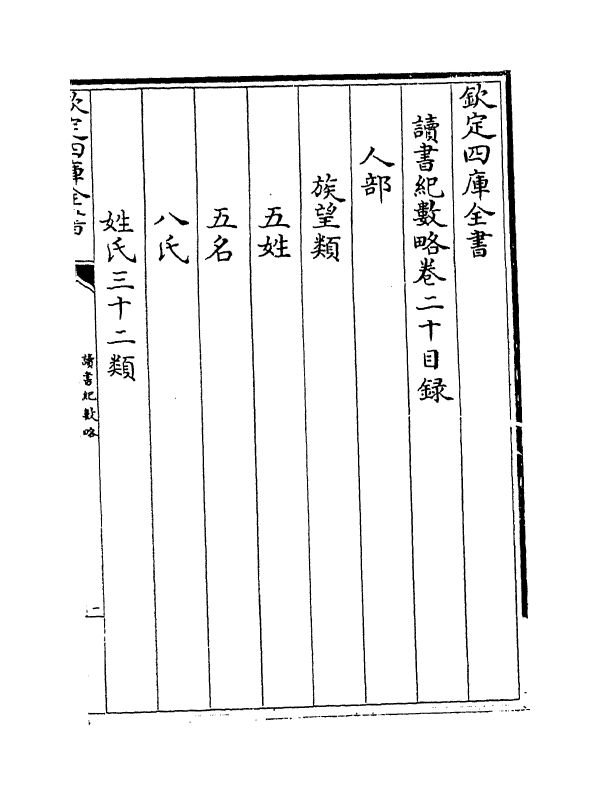 欽定四庫全書
讀書紀數略卷二十目録
人部
族望類
五姓
五名
八氏
姓氏三十二類
欽定四庫全書
讀書紀數略
二